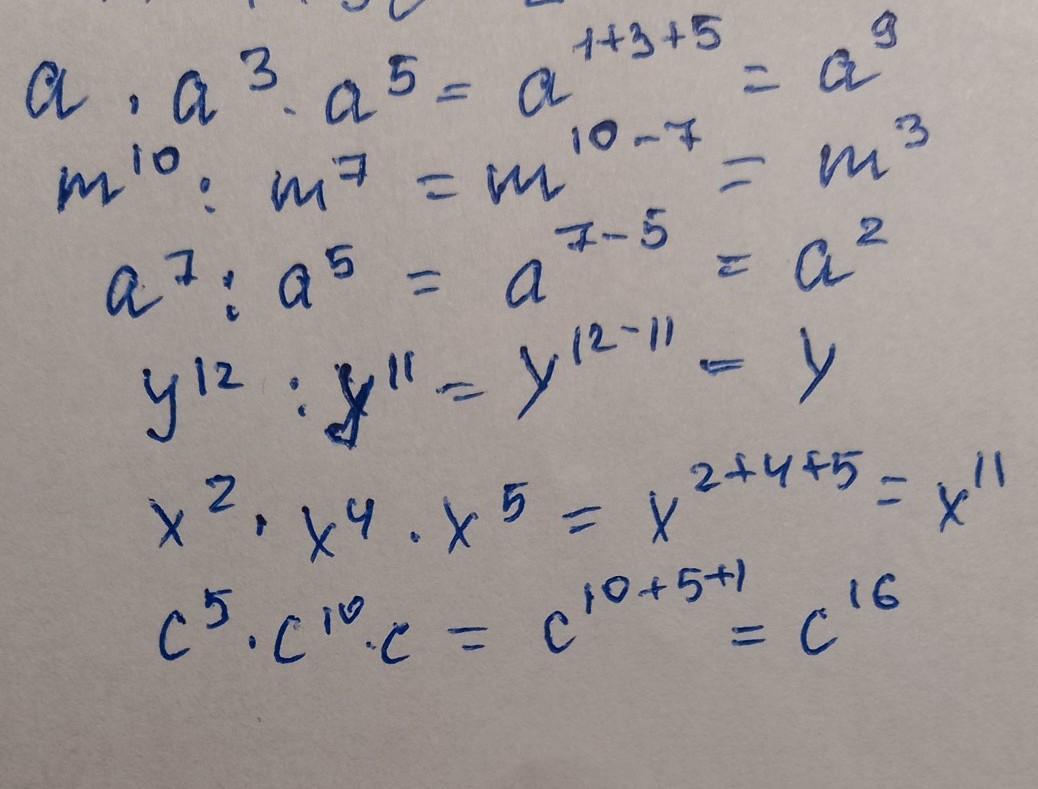 a · a³ · a⁵ = a¹⁺³⁺⁵ = a⁹
m¹⁰ : m⁷ = m¹⁰⁻⁷ = m³
a⁷ : a⁵ = a⁷⁻⁵ = a²
y¹² : y¹¹ = y¹²⁻¹¹ = y
x² · x⁴ · x⁵ = x²⁺⁴⁺⁵ = x¹¹
c⁵ · c¹⁰ · c = c¹⁰⁺⁵⁺¹ = c¹⁶